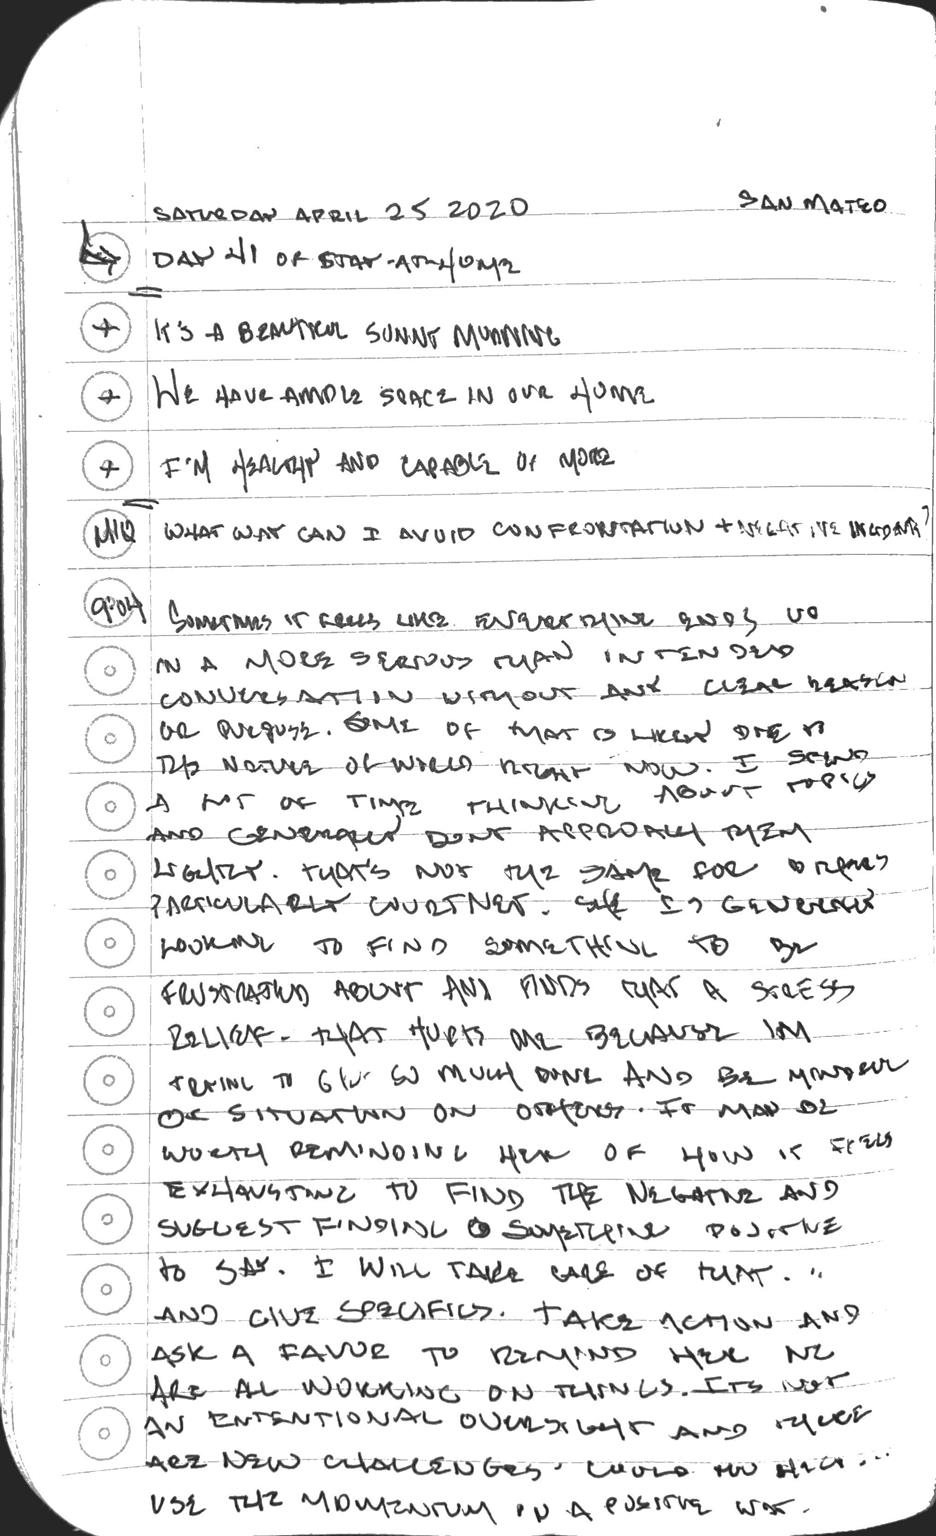 SATURDAY APRIL 25 2020 SAN MATEO
DAY 41 OF STAY-AT-HOME
+ IT'S A BEAUTIFUL SUNNY MORNING
+ WE HAVE AMPLE SPACE IN OUR HOME
+ I'M HEALTHY AND CAPABLE OF MORE
MIQ WHAT WAY CAN I AVOID CONFRONTATION + NEGATIVE INCIDENTS?
9:04 SOMETIMES IT FEELS LIKE EVERYTHING ENDS UP
IN A MORE SERIOUS THAN INTENDED
CONVERSATION WITHOUT ANY CLEAR REASON
OR PURPOSE. SOME OF THAT IS LIKELY DUE TO
THE NATURE OF WORLD RIGHT NOW. I SPEND
A LOT OF TIME THINKING ABOUT TOPICS
AND GENERALLY DONT APPROACH THEM
LIGHTLY. THAT'S NOT THE SAME FOR OTHERS
PARTICULARLY COURTNEY. SHE IS GENERALLY
LOOKING TO FIND SOMETHING TO BE
FRUSTRATED ABOUT AND FINDS THAT A STRESS
RELIEF. THAT HURTS ME BECAUSE IM
TRYING TO GIVE SO MUCH MORE AND BE MINDFUL
OF SITUATION ON OTHERS. IT MAY BE
WORTH REMINDING HER OF HOW IT FEELS
EXHAUSTING TO FIND THE NEGATIVE AND
SUGGEST FINDING SOMETHING POSITIVE
TO SAY. I WILL TAKE CARE OF THAT. ..
AND GIVE SPECIFICS. TAKE ACTION AND
ASK A FAVOR TO REMIND HER WE
ARE ALL WORKING ON THINGS. ITS NOT
AN ENTENTIONAL OVERSIGHT AND THERE
ARE NEW CHALLENGES. COULD YOU HELP...
USE THE MOMENTUM IN A POSITIVE WAY.